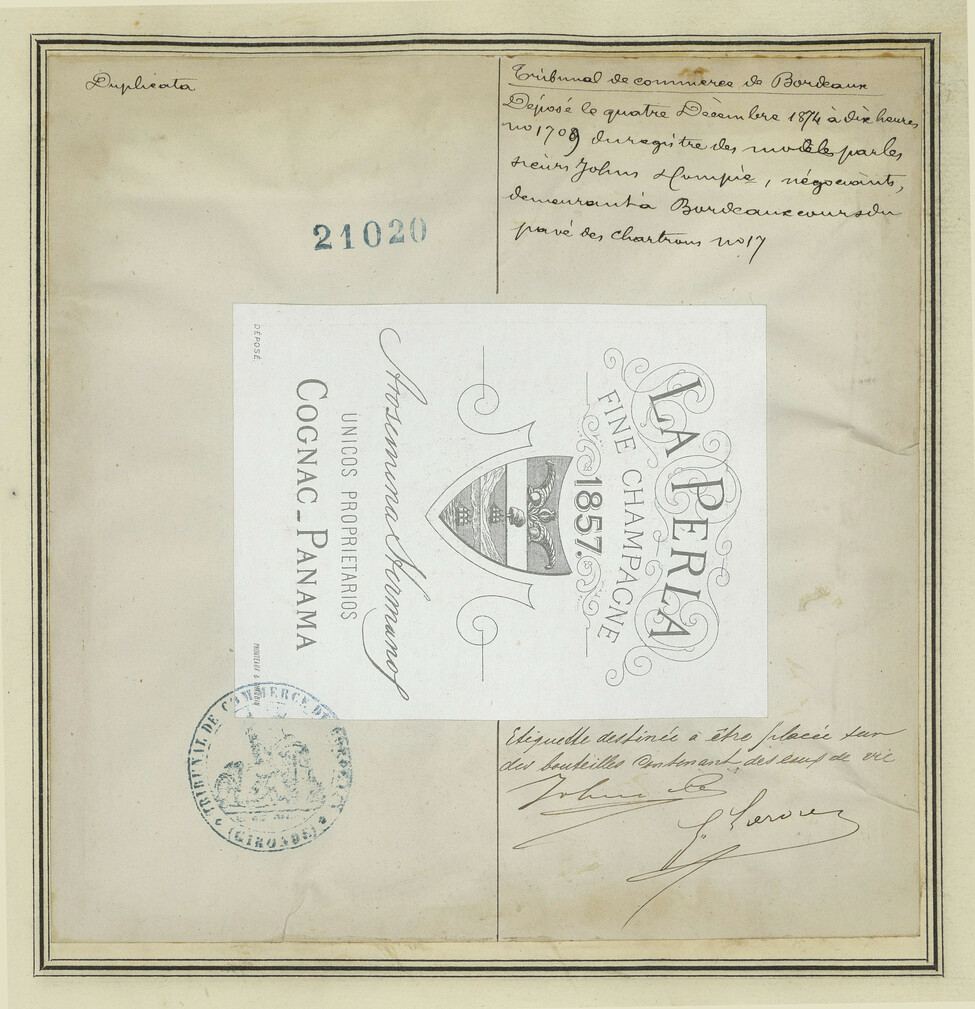 Duplicata
21020
Tribunal de commerce de Bordeaux
Déposé le quatre Décembre 1874 à dix heures
no 1709 du registre des modèles par les
sieurs Johns & Compie, négociants,
demeurant à Bordeaux cours du
pavé des Chartrons no 17
LA PERLA
FINE CHAMPAGNE
1857.
Arosemena Hermanos
UNICOS PROPRIETARIOS
COGNAC_PANAMA
DÉPOSÉ
Etiquette destinée à être placée sur
des bouteilles contenant des eaux de vie
TRIBUNAL DE COMMERCE DE BORDEAUX
(GIRONDE)